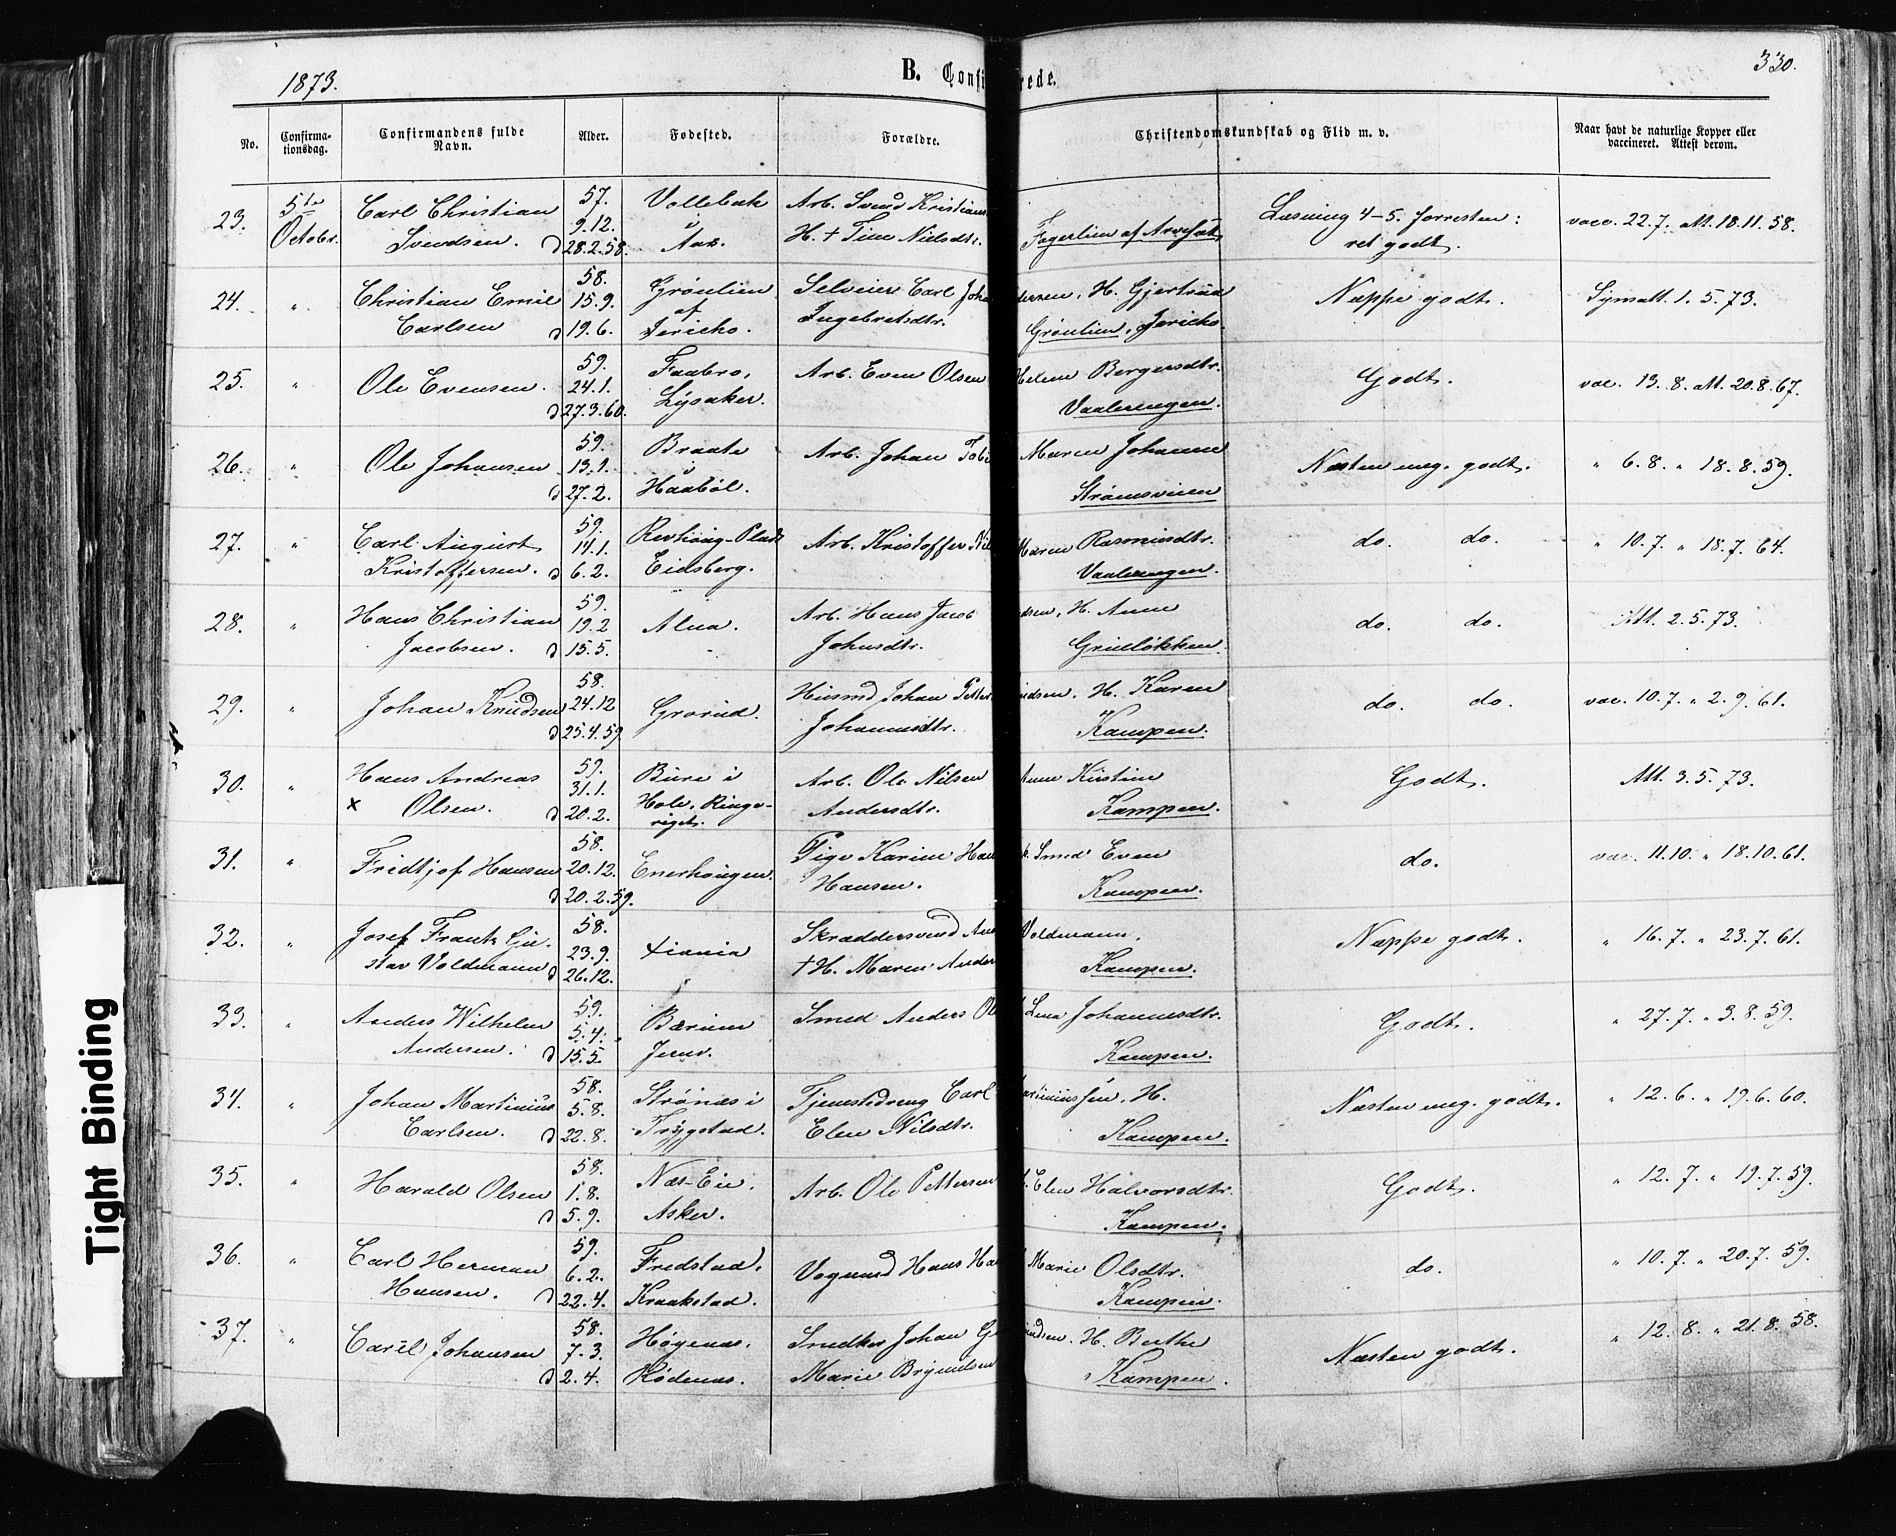 1873.
B. Confi rede.
330.
No. Confirma-tionsdag. Confirmandens fulde Navn. Alder. Fødested. Forældre. Christendomskundskab og Flid m. v. Naar havt de naturlige Kopper eller vaccineret. Attest derom.
23. 5te Octobr. Carl Christian Svendsen. 57. 9.12. d 28.2.58. Vollebæk i Aas. Arb. Svend Kristians H. + Tine Nielsdtr. Fagerlien af Læsning 4-5. forresten: ret godt. vacc. 22.7. Att. 18.11.58.
24. " Christian Emil Carlsen 58. 15.9. d 19.6. Grønlien af Jericho. Selveier Carl Joha dersen, H. Gjertrud Ingebretsdtr. Grønlien, Jericho. Næppe godt. Symatt. 1.5.73.
25. " Ole Evensen. 59. 24.1. d 27.3.60. Faabro, Lysaker. Arb. Even Olsen Helene Bergersdtr. Vaalerengen. Godt. vac. 13.8. Att. 20.8.67.
26. " Ole Johansen 59. 13.1. d 27.2. Braate i Haabøl. Arb. Johan Tobi Maren Johanne Strømsveien Næsten meg. godt. " 6.8. " 18.8.59.
27. " Carl August Kristoffersen. 59. 14.1. d 6.2. Revhaug-Plads Eidsberg. Arb. Kristoffer Nil Maren Rasmusdtr. Vaalerengen. do. do. " 10.7. " 18.7.64.
28. " Hans Christian Jacobsen. 59. 19.2 d 15.5. Alna. Arb. Hans Jacob Johnsdtr. H. Anne Grueløkken. do. do. Att. 2.5.73.
29. " Johan Knudsen 58. 24.12 d 25.4.59. Grorud. Husmd Johan Petter udsen, H. Karen Johannesdtr. Kampen. do. do. vac. 10.7. " 2.9.61.
30. " Hans Andreas x Olsen. 59. 31.1. d 20.2. Bure i Hole, Ringe-riget. Arb. Ole Nilsen Anne Kirstine Andersdtr. Kampen. Godt. Att. 3.5.73.
31. " Fridtjof Hansen 58. 20.12. d 20.2.59. Enerhaugen. Pige Karine Han Smed Even Hansen. Kampen. do. vac. 11.10. " 18.10.61.
32. " Josef Frantz Gu-stav Voldmann 58. 23.9. d 26.12. Xiania Skræddersvend Voldmann, + H. Maren Ander Kampen. Næppe godt. " 16.7. " 23.7.61.
33. " Anders Wilhelm Andersen. 59. 5.4. d 15.5. Bærums Jernv. Smed Anders Ol Lina Johannesdtr. Kampen. Godt. " 27.7. " 3.8.59.
34. " Johan Martinius Carlsen. 58. 5.8. d 22.8. Strønæs i Trygstad. Tjenestedreng Carl artiniussen, H. Elen Nilsdtr. Kampen. Næsten meg. godt. " 12.6. " 19.6.60.
35. " Harald Olsen 58. 1.8. d 5.9. Næs-Eie, Asker. Arb. Ole Pettersen Elen Halvorsdtr. Kampen. Godt. " 12.7. " 19.7.59.
36. " Carl Herman Hansen. 59. 6.2. d 22.4. Fredstad, Kraakstad. Vognmd Hans Ha Marie Olsdtr. Kampen. do. " 10.7. " 20.7.59.
37. " Carel Johansen 58. 7.3. d 2.4. Høgenæs, Rødenæs. Snedker Johan G undsen, H. Berthe Marie Bryndsen Kampen. Næsten godt. " 12.8. " 21.8.58.
Tight Binding